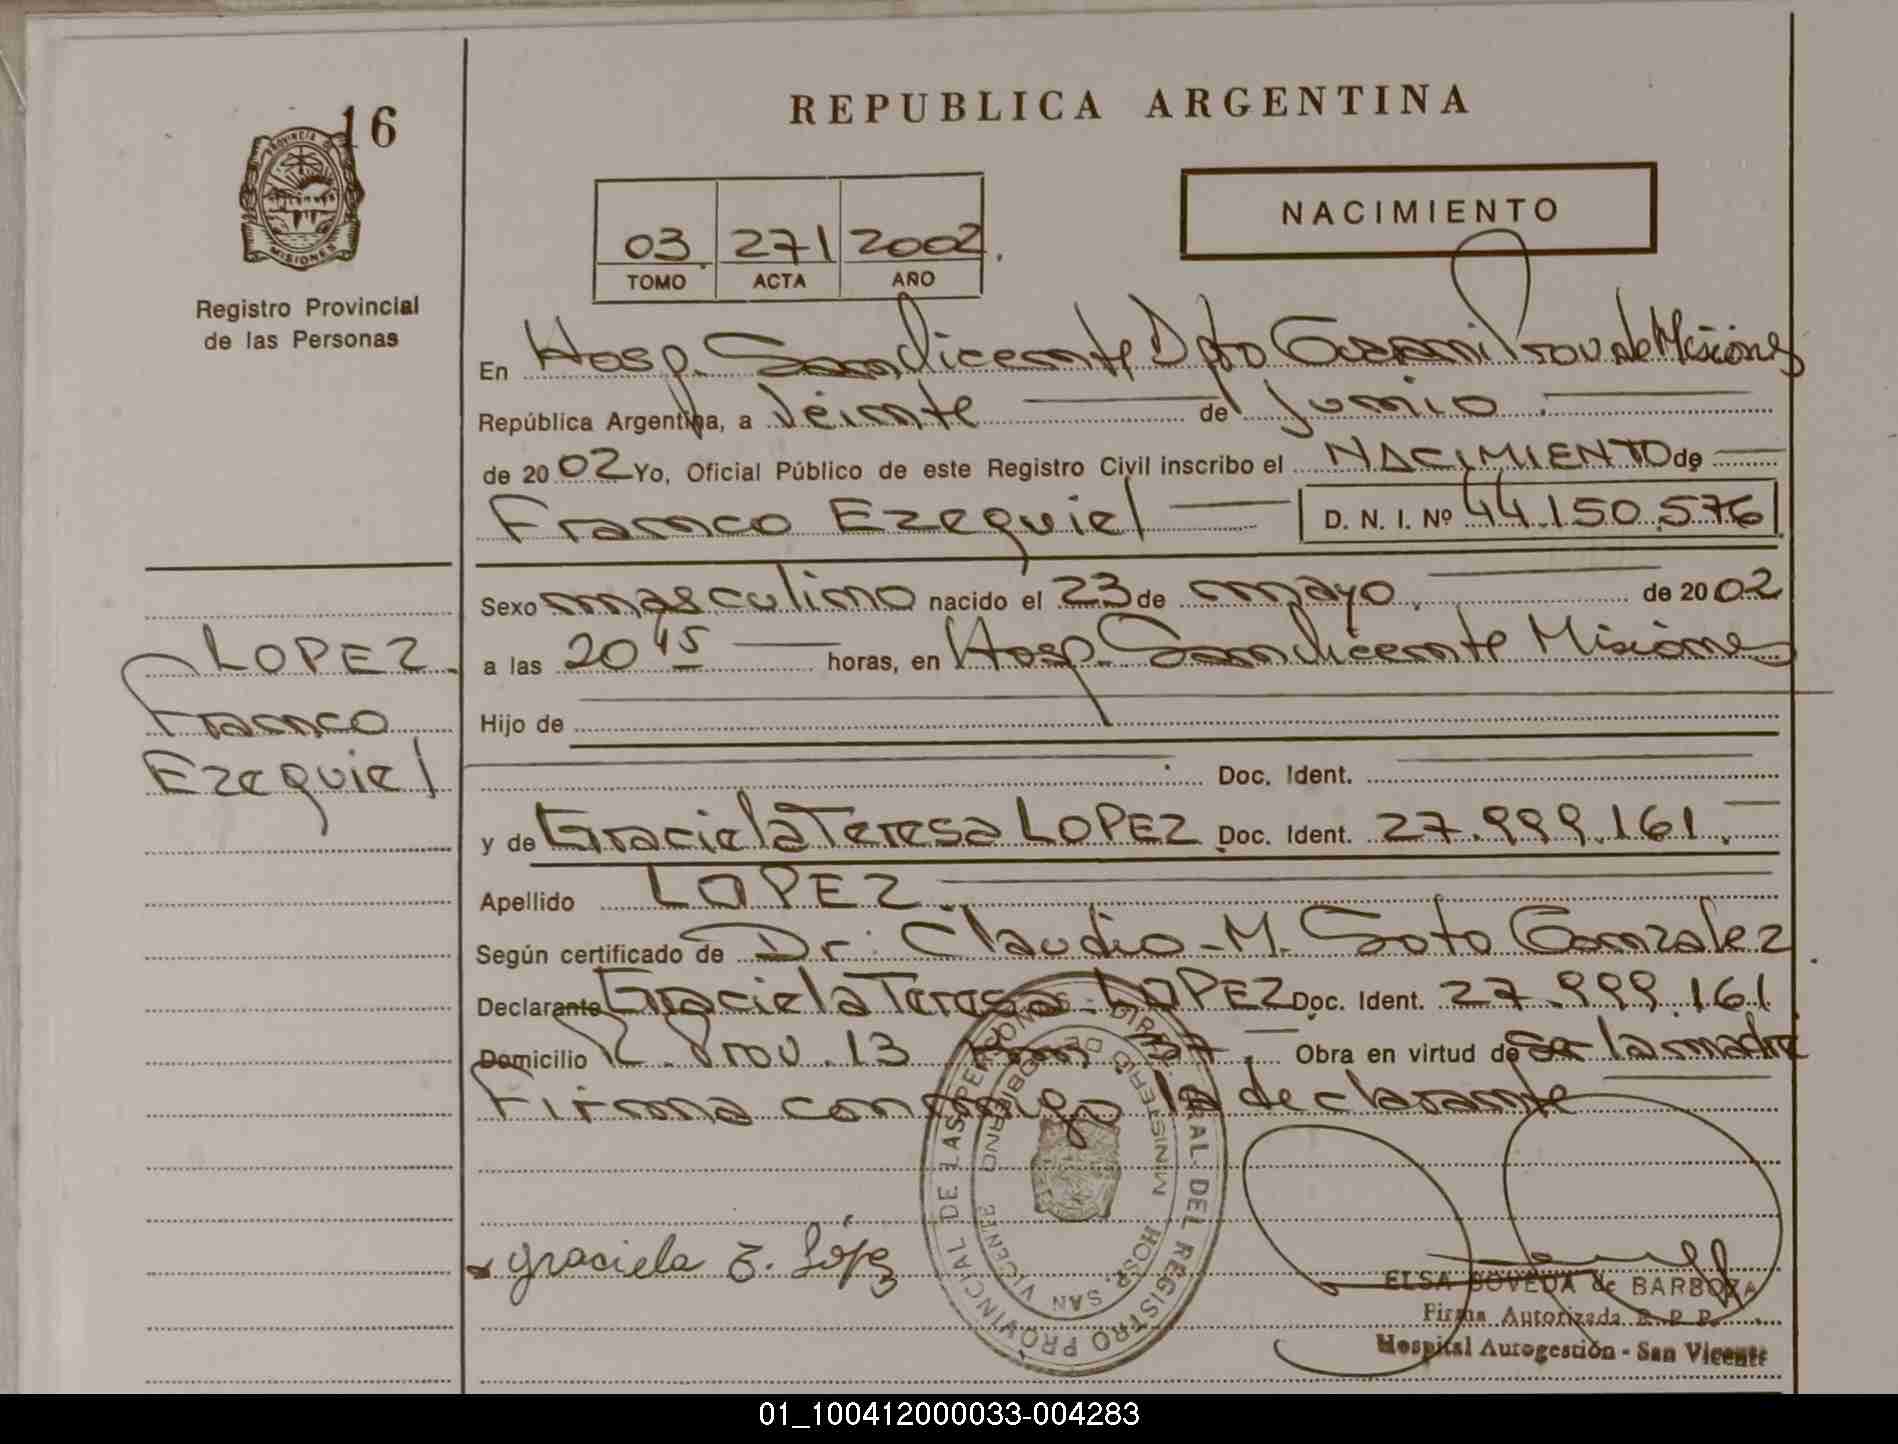 16
PROVINCIA DE
MISIONES
Registro Provincial
de las Personas
REPUBLICA ARGENTINA
03 271 2002.
TOMO ACTA AÑO
NACIMIENTO
En Hosp. San Vicente Dpto Guarani Prov de Misiones
República Argentina, a Veinte de Junio
de 2002 Yo, Oficial Público de este Registro Civil inscribo el NACIMIENTO de
Franco Ezequiel D. N. I. Nº 44.150.576
Sexo masculino nacido el 23 de mayo de 2002
a las 20 45 horas, en Hosp. San Vicente Misiones
Hijo de
Doc. Ident.
y de Graciela Teresa LOPEZ Doc. Ident. 27.999.161.
Apellido LOPEZ.
Según certificado de Dr. Claudio M. Soto Gonzalez
Declarante Graciela Teresa LOPEZ Doc. Ident. 27.999.161
Domicilio R. Prov. 13 Km. 37. Obra en virtud de Ser la madre
Firma conmigo la declarante
LOPEZ.
Franco
Ezequiel
graciela T. López
DIRECCION GENERAL DEL REGISTRO PROVINCIAL DE LAS PERSONAS
MINISTERIO DE GOBIERNO
HOSP. SAN VICENTE
ELSA SOVEDA de BARBOZA
Firma Autorizada R. P. P.
Hospital Autogestión - San Vicente
01_100412000033-004283